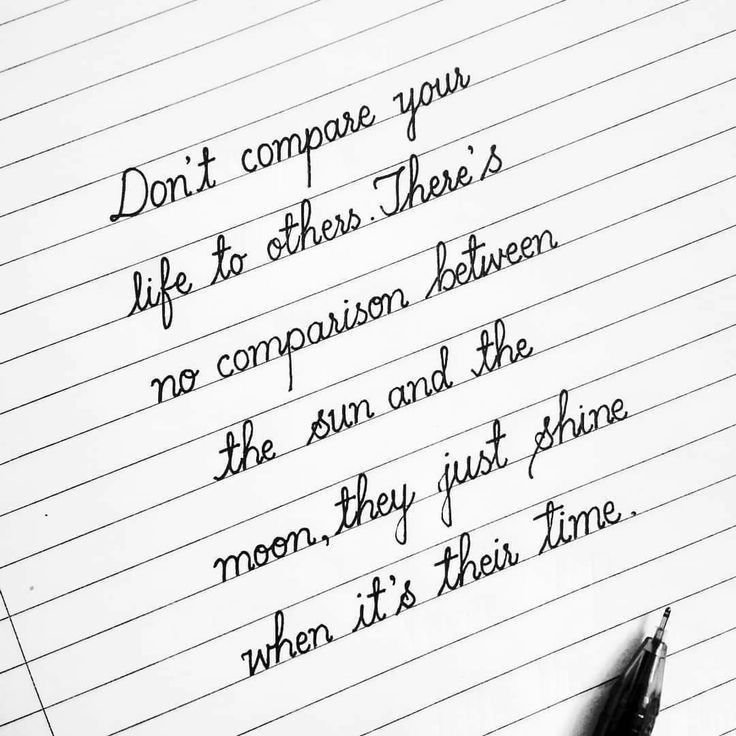 Don't compare your
life to others. There's
no comparison between
the sun and the
moon, they just shine
when it's their time.